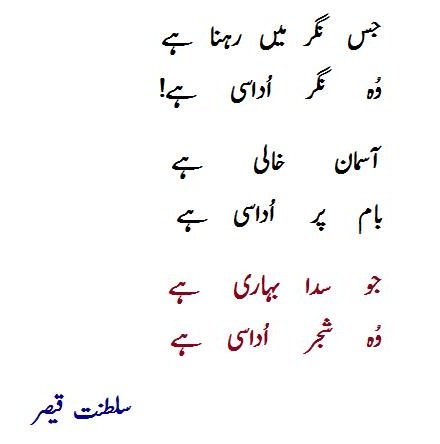 جس نگر میں رہنا ہے
وُہ نگر اُداسی ہے!
آسمان خالی ہے
بام پر اُداسی ہے
جو سدا بہاری ہے
وُہ شجر اُداسی ہے
سلطنت قیصر